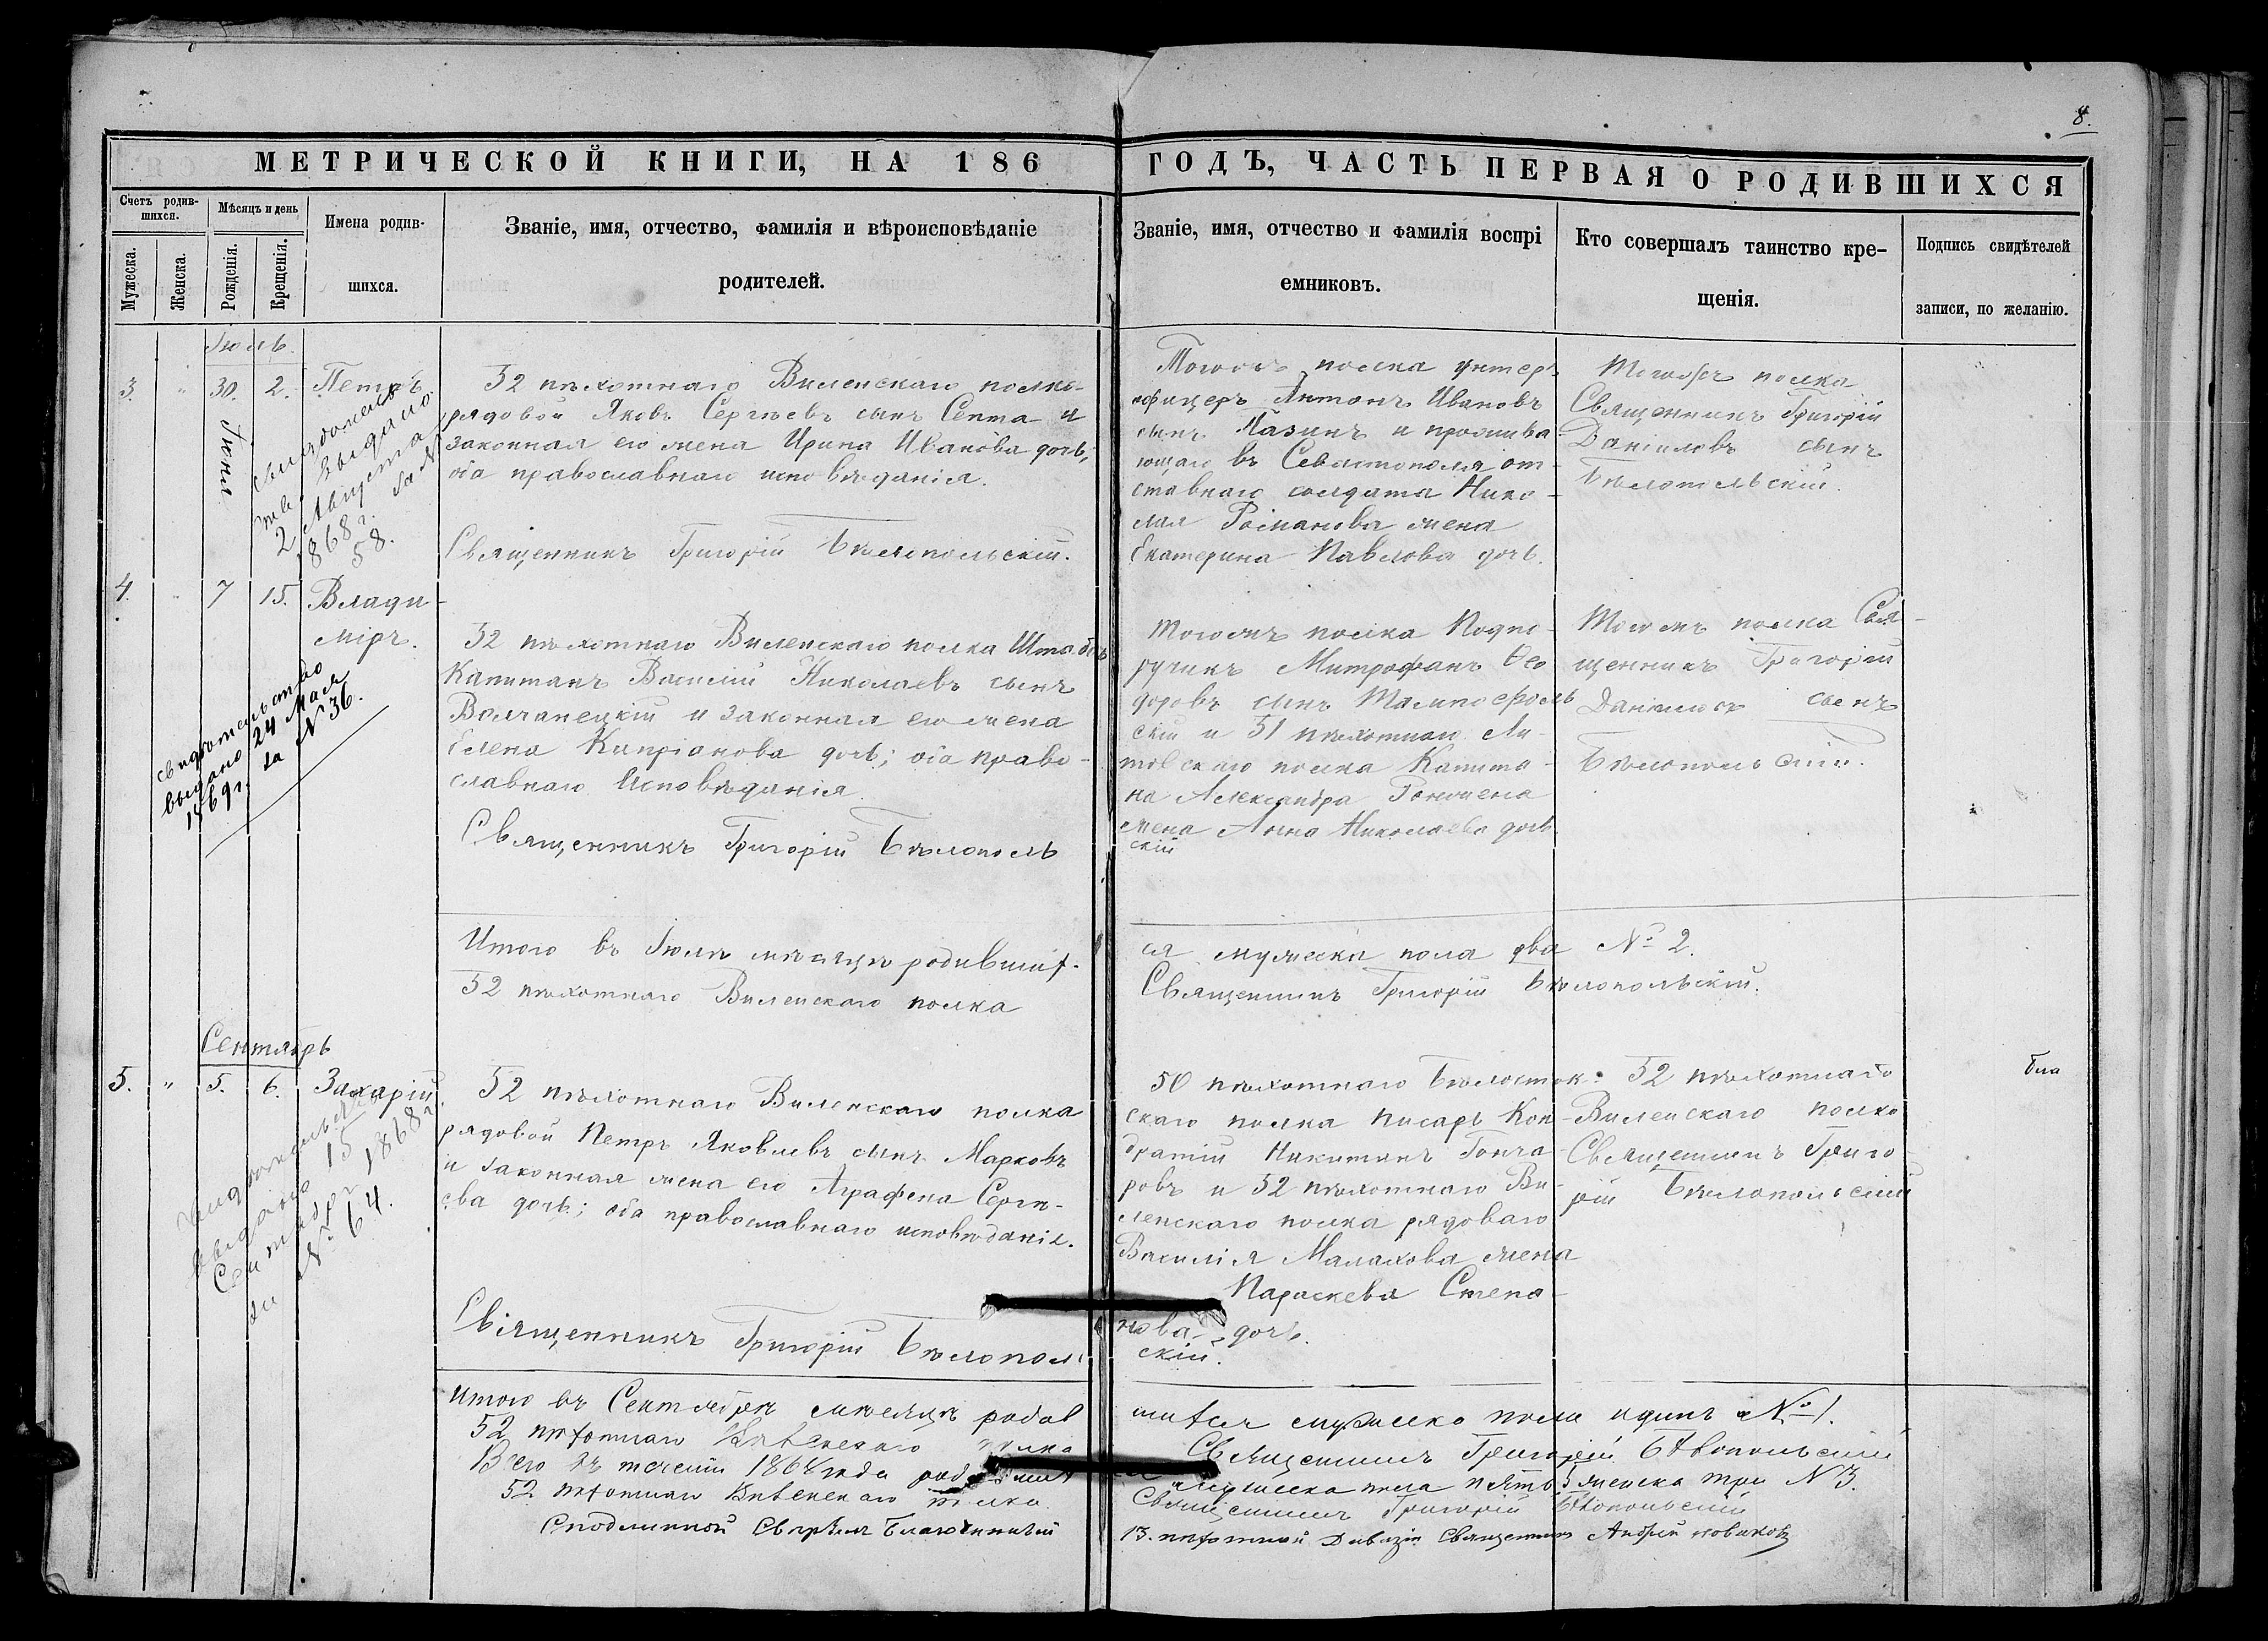 8.
МЕТРИЧЕСКОЙ КНИГИ, НА 186
ГОДЪ, ЧАСТЬ ПЕРВАЯ О РОДИВШИХСЯ
Счетъ родив-
шихся.
Мужеска.
Женска.
Мѣсяцъ и день
Рожденія.
Крещенія.
Имена родив-
шихся.
Званіе, имя, отчество, фамилія и вѣроисповѣданіе
родителей.
Званіе, имя, отчество и фамилія воспрі
емниковъ.
Кто совершалъ таинство кре-
щенія.
Подпись свидѣтелей
записи, по желанію.
Іюль.
3. " 30. 2. Петръ
Іюня
выдано
2 Августа
1868 г. за №
58.
52 пѣхотнаго Виленскаго полка
рядовой Яковъ Сергѣевъ сынъ Септа и
законная его жена Ирина Иванова дочь;
оба православнаго исповѣданія.
Священникъ Григорій Бѣлопольскій.
Тогожъ полка унтеръ
офицеръ Антонъ Ивановъ
сынъ Мазинъ и прожива
ющаго въ Севастополя от-
ставнаго солдата Нико-
лая Романова жена
Екатерина Павлова дочь.
Тогожъ полка
Священникъ Григорій
Даніиловъ сынъ
Бѣлопольскій.
4. " 7 15. Влади-
міръ.
свидѣтельство
выдано 24 Мая
1869 г. за № 36.
52 пѣхотнаго Виленскаго полка Штабсъ
Капитанъ Василій Николаевъ сынъ
Волчанецкій и законная его жена
Елена Кипріанова дочь; оба право-
славнаго Исповѣданія.
Священникъ Григорій Бѣлополь
скій
Тогожъ полка Подпо-
ручикъ Митрофанъ Ѳео
доровъ сынъ
скій и 51 пѣхотнаго Ли-
товскаго полка Капита-
на Александра
жена Анна Николаева дочь
Тогожъ полка Свя-
щенникъ Григорій
Даніиловъ сынъ
Бѣлопольскій.
Итого въ Іюлѣ мѣсяцѣ родивших-
ся мужеска пола два № 2.
52 пѣхотнаго Виленскаго полка
Священникъ Григорій Бѣлопольскій.
Сентябрь
5. " 5. 6. Захарій.
выдано 15
Сентября 1868 г.
за № 64.
52 пѣхотнаго Виленскаго полка
рядовой Петръ Яковлевъ сынъ Марковъ
и законная жена его Аграфена Сергѣ-
ева дочь; оба православнаго исповѣданія.
Священникъ Григорій Бѣлополь
скій.
50 пѣхотнаго Бѣлосток-
скаго полка писарь Кон-
дратій Никитинъ Гонча-
ровъ и 52 пѣхотнаго Ви-
ленскаго полка рядоваго
Василія Малахова жена
Параскева Степа-
нова дочь.
52 пѣхотнаго
Виленскаго полка
Священникъ Григо-
рій Бѣлопольскій
Итого въ Сентябрѣ мѣсяцѣ родив
шихся мужеска пола одинъ № 1.
52 пѣхотнаго Виленскаго полка
Священникъ Григорій Бѣлопольскій
Всего въ теченіи 1868 года
мужеска пола пять 5 женска три № 3.
52 пѣхотнаго Виленскаго полка
Священникъ Григорій Бѣлопольскій
Съ подлинной свѣрялъ Благочинный
13. пѣхотной Дивизіи Священникъ Андрей Новиковъ